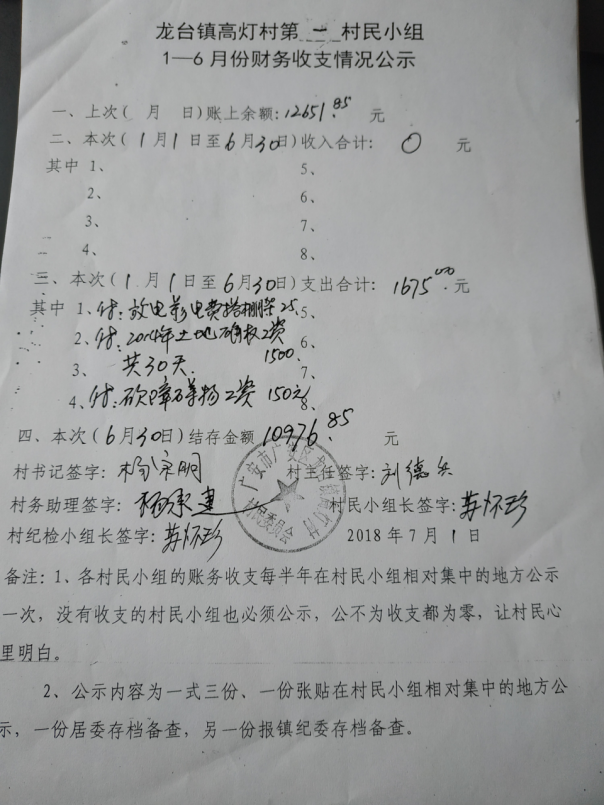 龙台镇高灯村第 一 村民小组
1—6月份财务收支情况公示
一、上次( 月 日)账上余额:12651.85 元
二、本次(1月1日至6月30日)收入合计: 0 元
其中 1、 5、
2、 6、
3、 7、
4、 8、
三、本次(1月1日至6月30日)支出合计: 1675.00元
其中 1、付:放电影电费搭棚等25. 5、
2、付:2014年土地确权工费 6、
3、 共30天. 1500. 7、
4、付:砍障碍物工资 150元 8、
四、本次(6月30日)结存金额 10976.85 元
村书记签字:杨 明 村主任签字:刘德
村务助理签字:杨 建 村民小组长签字:苏怀珍
村纪检小组长签字:苏怀珍 2018年7月1日
广安市广安区 高灯村
村民委员会
备注:1、各村民小组的账务收支每半年在村民小组相对集中的地方公示
一次,没有收支的村民小组也必须公示,公不为收支都为零,让村民心
里明白。
2、公示内容为一式三份、一份张贴在村民小组相对集中的地方公
示,一份居委存档备查,另一份报镇纪委存档备查。